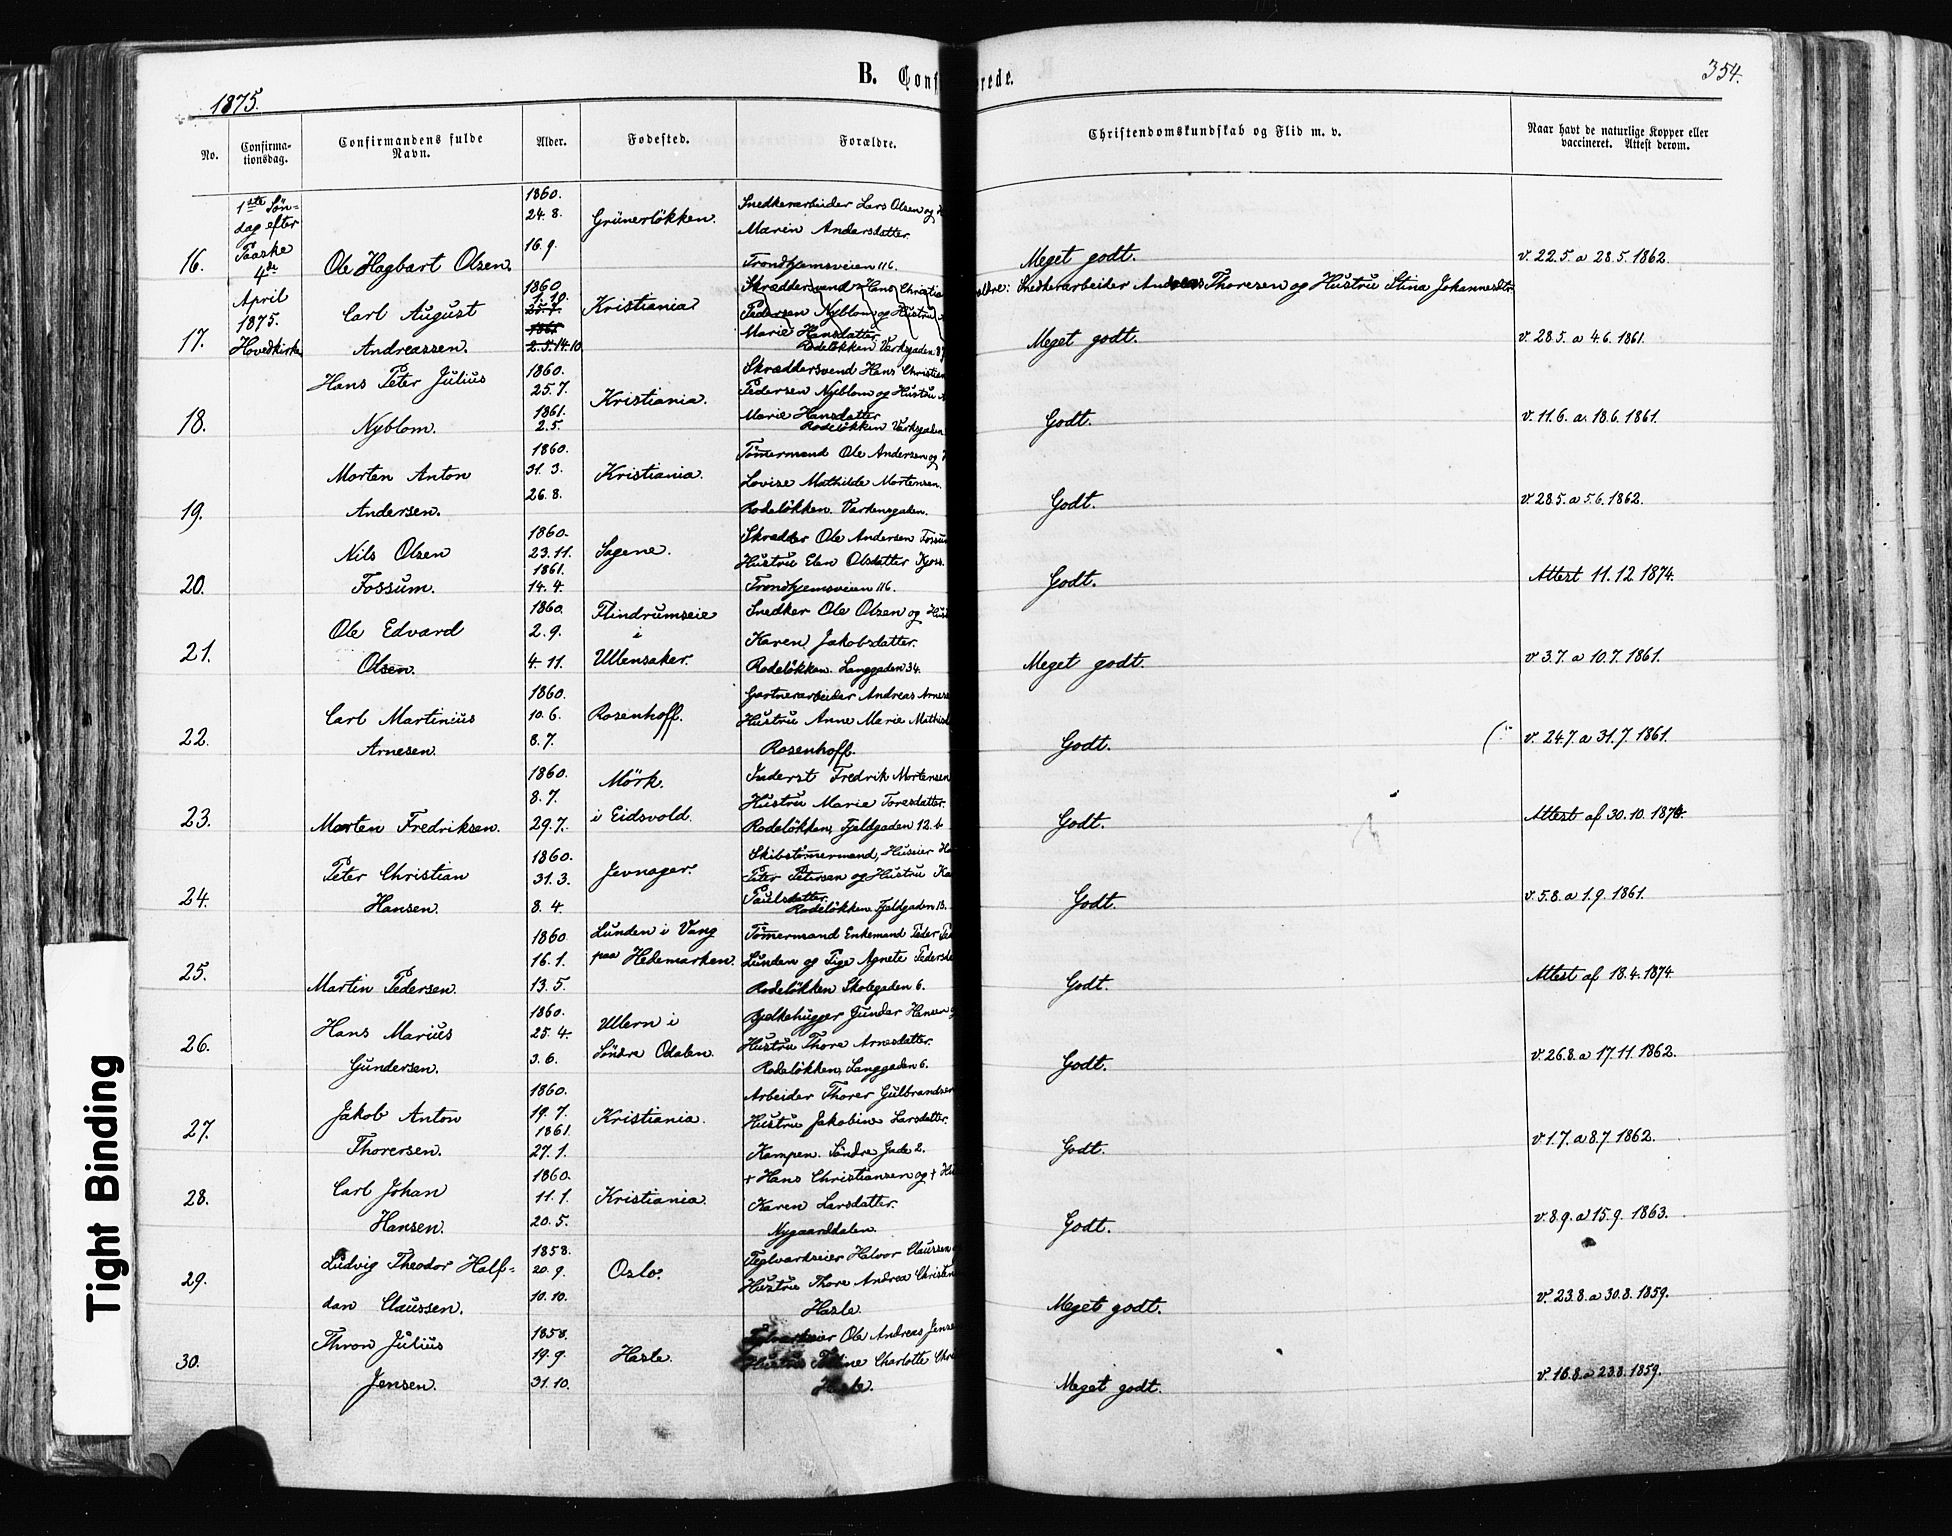 B. Conf
rede.
354.
1875.
No.
Confirma-
tionsdag.
Confirmandens fulde
Navn.
Alder.
Fødested.
Forældre.
Christendomskundskab og Flid m. v.
Naar havt de naturlige Kopper eller
vaccineret. Attest derom.
1ste Søn-
dag efter
Paaske
4de
April
1875.
Hovedkirke
16.
Ole Hagbart Olsen.
1860.
24. 8.
16. 9.
Grünerløkken.
Snedkerarbeider Lars Olsen og
Maren Andersdatter.
Trondhjemsveien 116.
Meget godt.
v. 22.5. a 28.5. 1862.
17.
Carl August
Andreassen.
1860.
1. 10.
25. 7.
1861
2. 5. 14. 10
Kristiania.
Skræddersvend Hans Christia
Pedersen Nyblom og Hustru
Marie Hansdatter.
Rodeløkken Værksgaden 8
ældre: Snedkerarbeider Andreas Thoresen og Hustru Stina Johannesdtr.
Meget godt.
v. 28.5. a 4.6. 1861.
18.
Hans Peter Julius
Nyblom.
1860.
25. 7.
1861.
2. 5.
Kristiania.
Skræddersvend Hans Christian
Pedersen Nyblom og Hustru
Marie Hansdatter
Rodeløkken Værksgaden
Godt.
v. 11.6. a. 18.6. 1861.
19.
Morten Anton
Andersen.
1860.
31. 3.
26. 8.
Kristiania.
Tømermand Ole Andersen og
Lovise Mathilde Mortensen.
Rodeløkken. Værkensgaden.
Godt.
v. 28.5. a 5.6. 1862.
20.
Nils Olsen
Fossum.
1860.
23. 11.
1861.
14. 4.
Sagene.
Skrædder Ole Andersen Fossum
Hustru Elen Olsdatter Kjoss.
Trondhjemsveien 116.
Godt.
Attest 11. 12. 1874.
21.
Ole Edvard
Olsen.
1860.
2. 9.
4. 11.
Flindrumseie
i
Ullensaker.
Snedker Ole Olsen og Hus
Karen Jakobsdatter.
Rodeløkken. Langgaden 34.
Meget godt.
v. 3.7. a 10.7. 1861.
22.
Carl Martinius
Arnesen.
1860.
10. 6.
8. 7.
Rosenhoff.
Gartnerarbeider Andreas Arnese
Hustru Anne Marie Mathisd
Rosenhoff.
Godt.
v. 24.7. a 31.7. 1861.
23.
Morten Fredriksen.
1860.
8. 7.
29. 7.
Mörk.
i Eidsvold.
Inderst Fredrik Mortensen
Hustru Marie Toresdatter.
Rodeløkken, Fjeldgaden 12. b
Godt.
Attest af 30. 10. 1874.
24.
Peter Christian
Hansen.
1860.
31. 3.
8. 4.
Jevnager.
Skibstømermand, Huseier Ha
Peter Petersen og Hustru Ka
Paulsdatter.
Rodeløkken. Fjeldgaden 13.
Godt.
v. 5.8. a 1.9. 1861.
25.
Martin Pedersen.
1860.
16. 1.
13. 5.
Lunden i Vang
paa Hedemarken.
Tømermand Enkemand Peder Pe
Lunden og Pige Agnete Pedersd
Rodeløkken Skolegaden 6.
Godt.
Attest af 18.4. 1874
26.
Hans Marius
Gundersen.
1860.
25. 4.
3. 6.
Ullern i
Søndre Odalen.
Bjelkehugger Gunder Hansen
Hustru Thore Arnesdatter.
Rodeløkken, Langgaden 6.
Godt.
v. 26.8. a 17.11. 1862.
27.
Jakob Anton
Thorersen.
1860.
19. 7.
1861.
27. 1.
Kristiania.
Arbeider Thorer Gulbrandsen
Hustru Jakobine Larsdatter.
Kampen. Søndre Gade 2.
Godt.
v. 1.7. a 8.7. 1862.
28.
Carl Johan
Hansen.
1860.
11. 1.
20. 5.
Kristiania.
+ Hans Christiansen og + Hu
Karen Larsdatter.
Nygaarddalen.
Godt.
v. 8.9. a 15.9. 1863.
29.
Ludvig Theodor Half-
dan Claussen.
1858.
20. 9.
10. 10.
Oslo.
Teglværkseier Halvor Claussen
Hustru Thore Andrea Christen
Hasle
Meget godt.
v. 23.8. a 30.8. 1859.
30.
Thron Julius
Jensen.
1858.
19. 9.
31. 10.
Hasle.
Ole Andreas Jense
Hustru Charlotte Chri
Hasle.
Meget godt.
v. 16.8. a 23.8. 1859.
Tight Binding